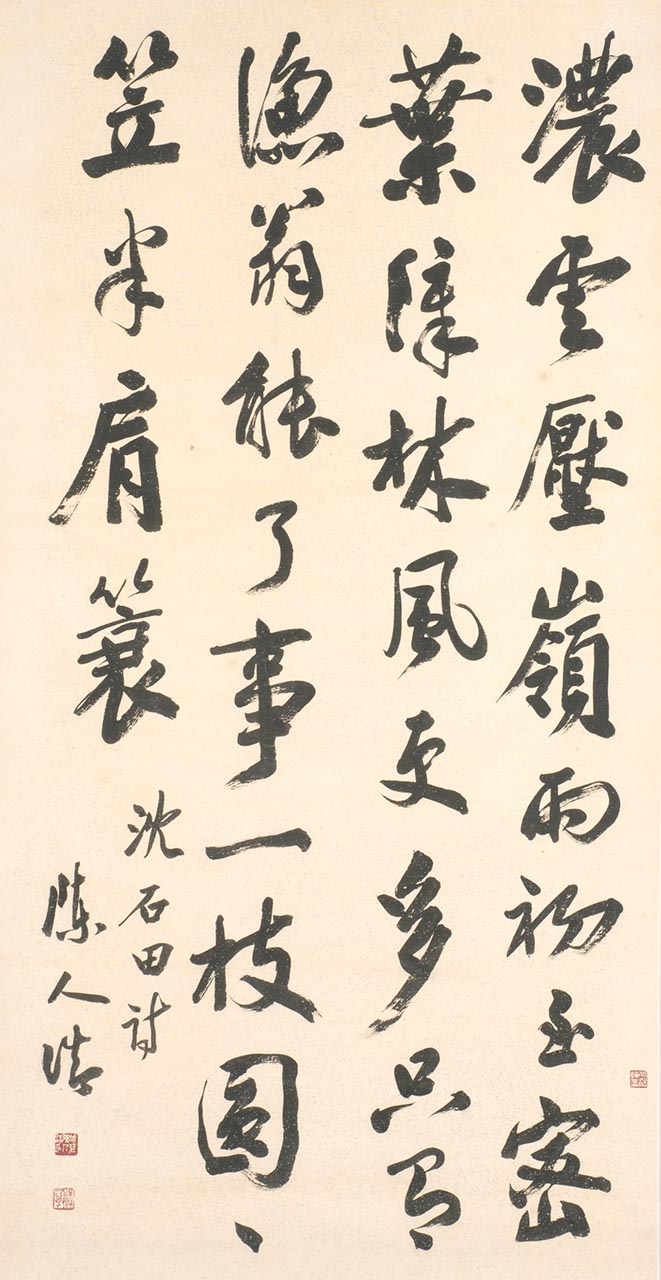 濃雲壓嶺雨初至密
葉障林風更多只有
漁翁能了事一枝圓、
笠半肩簑
沈石田詩
陳人浩